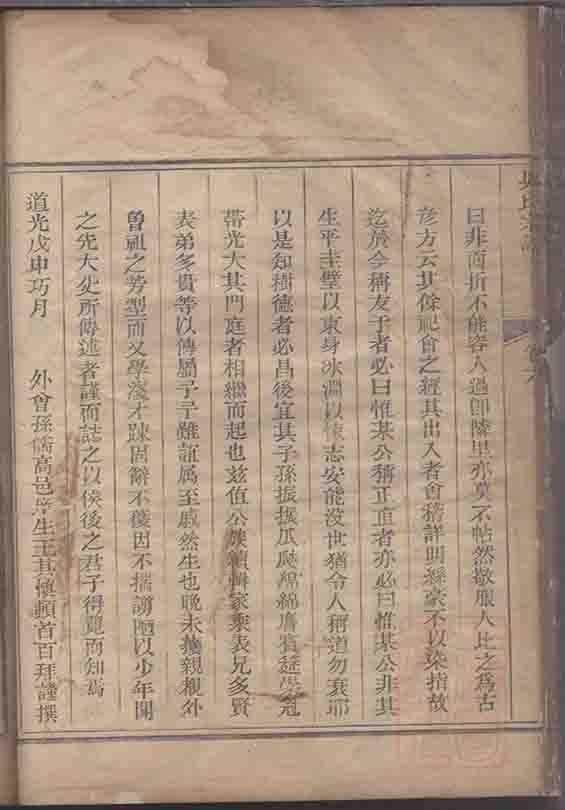 曰非面折不能容人過卽隣里亦莫不帖然敬服人比之爲古
彥方云其餘祀會之經其出入者會稽詳明絲毫不以染指故
迄於今稱友于者必曰惟某公稱正直者亦必曰惟某公非其
生平圭璧以束身冰淵以惕志安能沒世猶令人稱道勿衰耶
以是知樹德者必昌後宜其子孫振振瓜瓞綿綿膺賓筵學冠
帶光大其門庭者相繼而起也茲值公族續輯家乘表兄多賢
表弟多貴等以傳屬予予雖誼属至戚然生也晚未獲親覩外
曾祖之芳型而又學淺才踈固辭不獲因不揣謭陋以少年聞
之先大父所傳述者謹而誌之以俟後之君子得覽而知焉
道光戊申巧月 外曾孫儒高邑庠生王其頓首百拜謹撰
氏宗譜